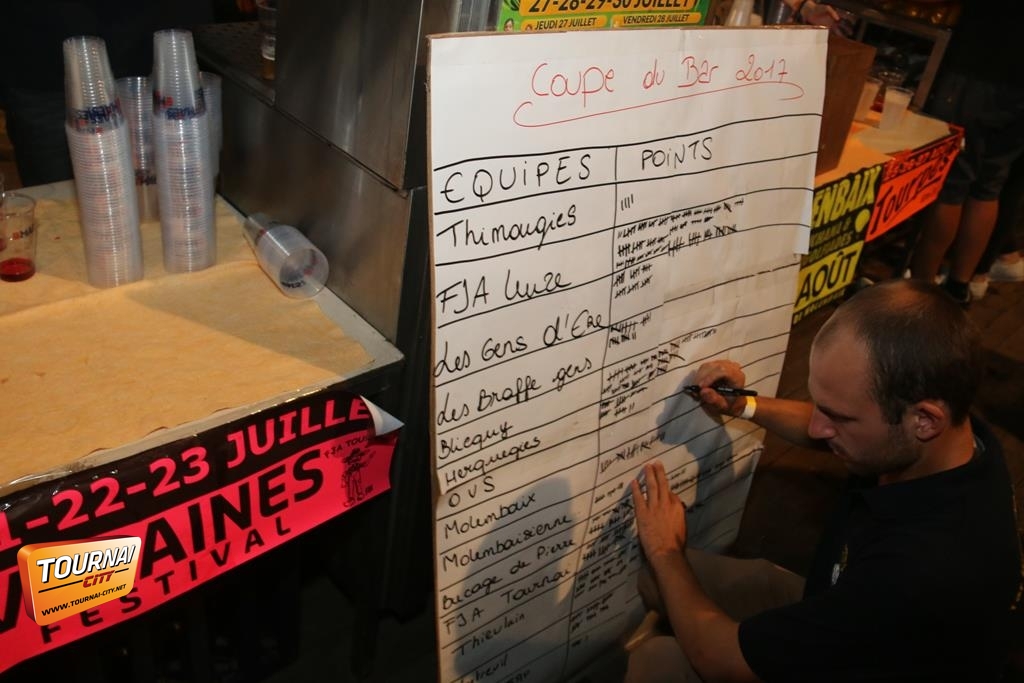 27-28-29-30 JUILLET
JEUDI 27 JUILLET VENDREDI 28 JUILLET
Coupe du Bar 2017
EQUIPES POINTS
Thimougies
FJA Leuze
Les Gens d'Ere
Les Braffe gens
Blicquy
Herquegies
OVS
Molembaix
Molembaisienne
bucage de Pierre
FJA Tournai
Thieulain
ENBAIX
AOÛT
TOURNAI
-22-23 JUILLE
FJA TOU
AINES
FESTIVAL
TOURNAI
CITY
WWW.TOURNAI-CITY.NET